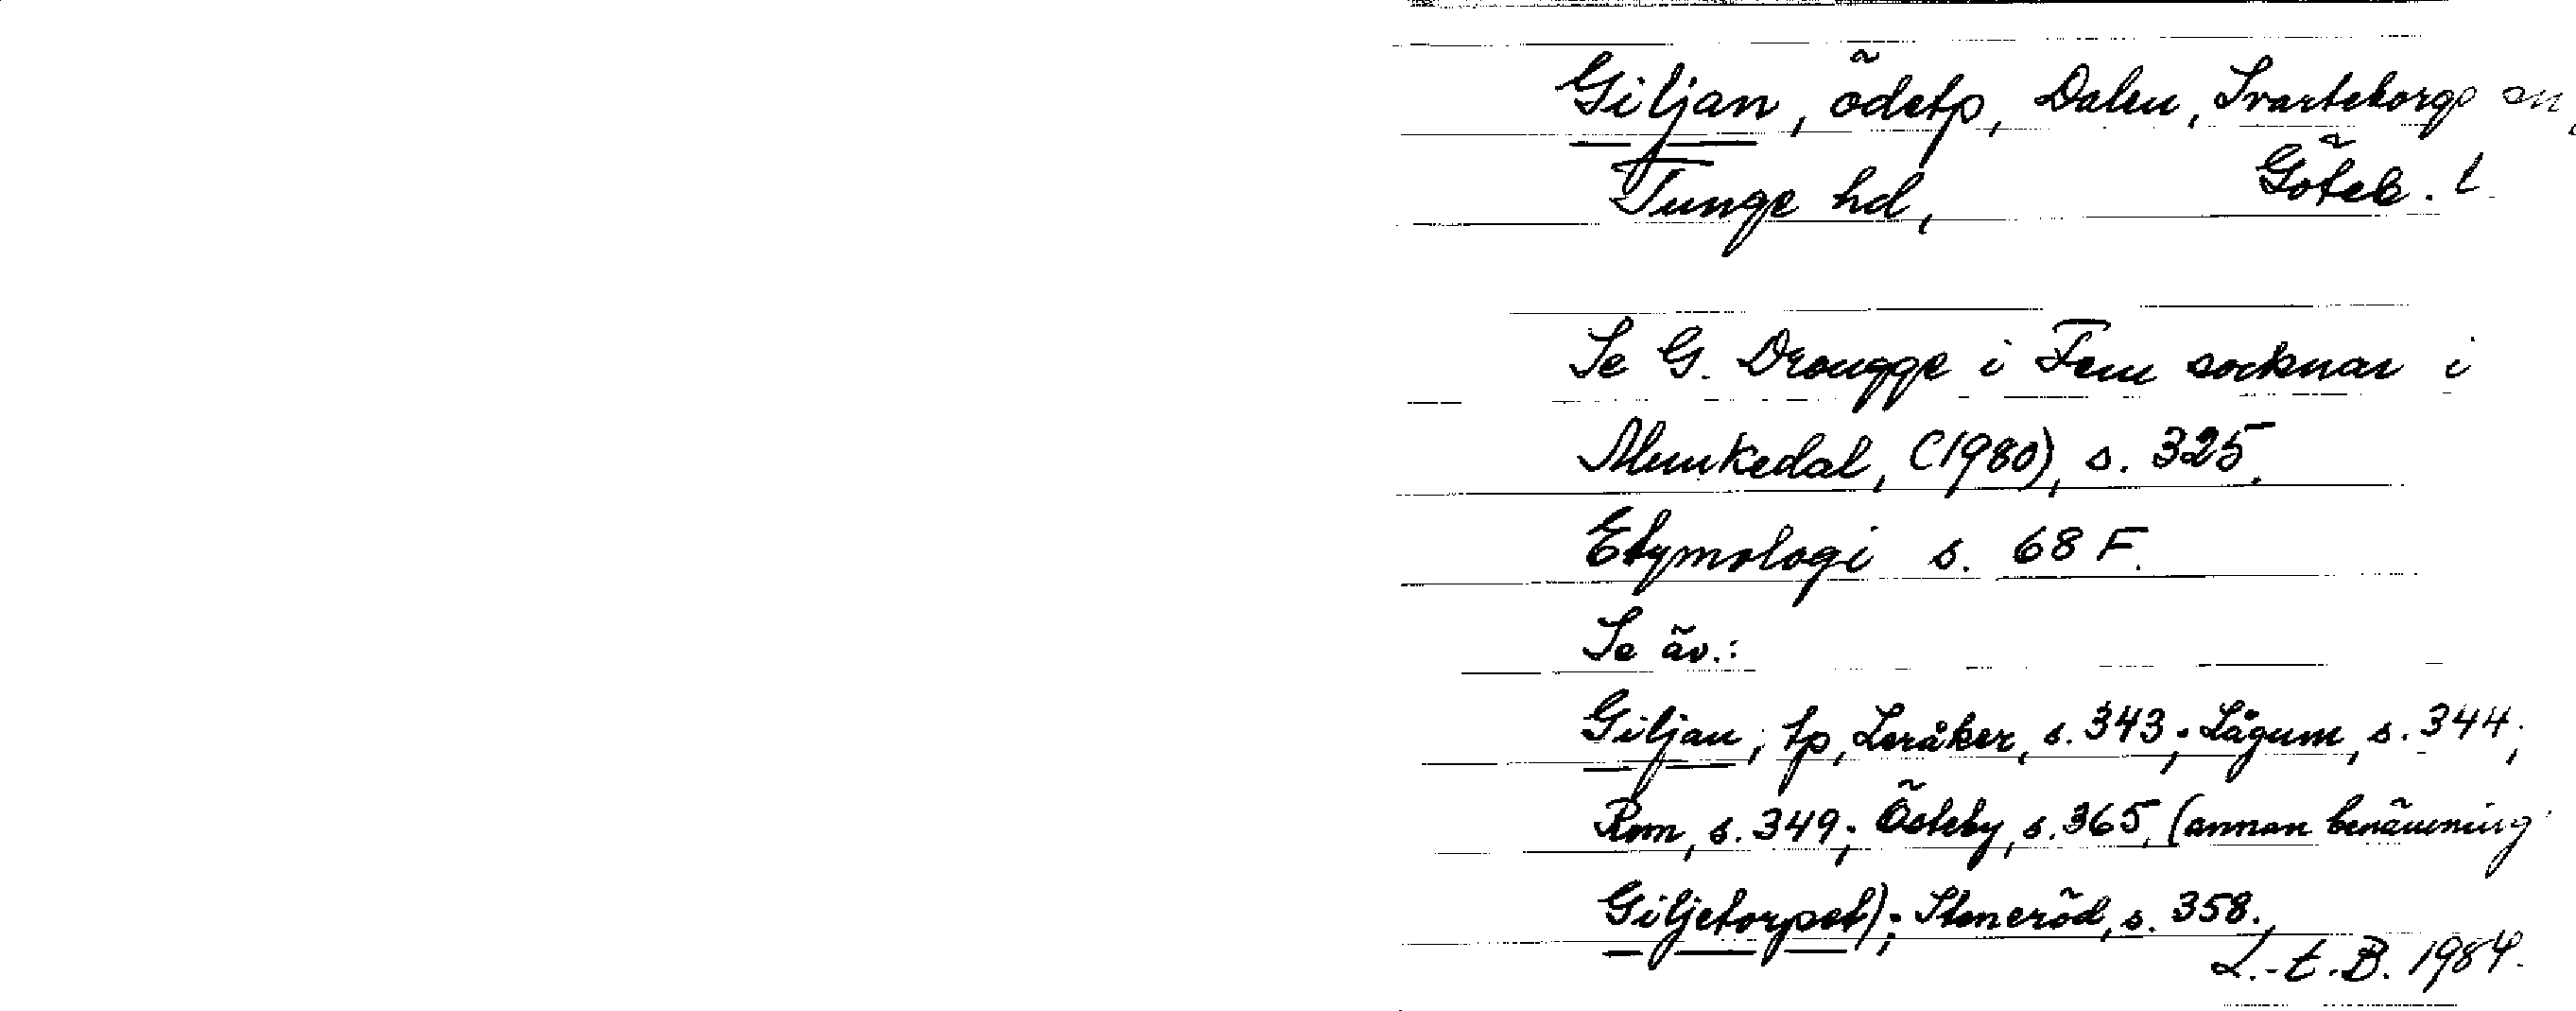 Giljan, ödetp, Dalen, Svarteborgs sn,
Tunge hd, Göteb. l.
Se G. Drougge i Fem socknar i
Munkedal, (1980), s. 325.
Etymologi s. 68 F.
Se äv.:
Giljan, tp, Leråker, s. 343; Lågum, s. 344;
Rom, s. 349; Östeby, s. 365, (annan benämning
Giljetorpet); Steneröd, s. 358.
L.-E.B. 1984.